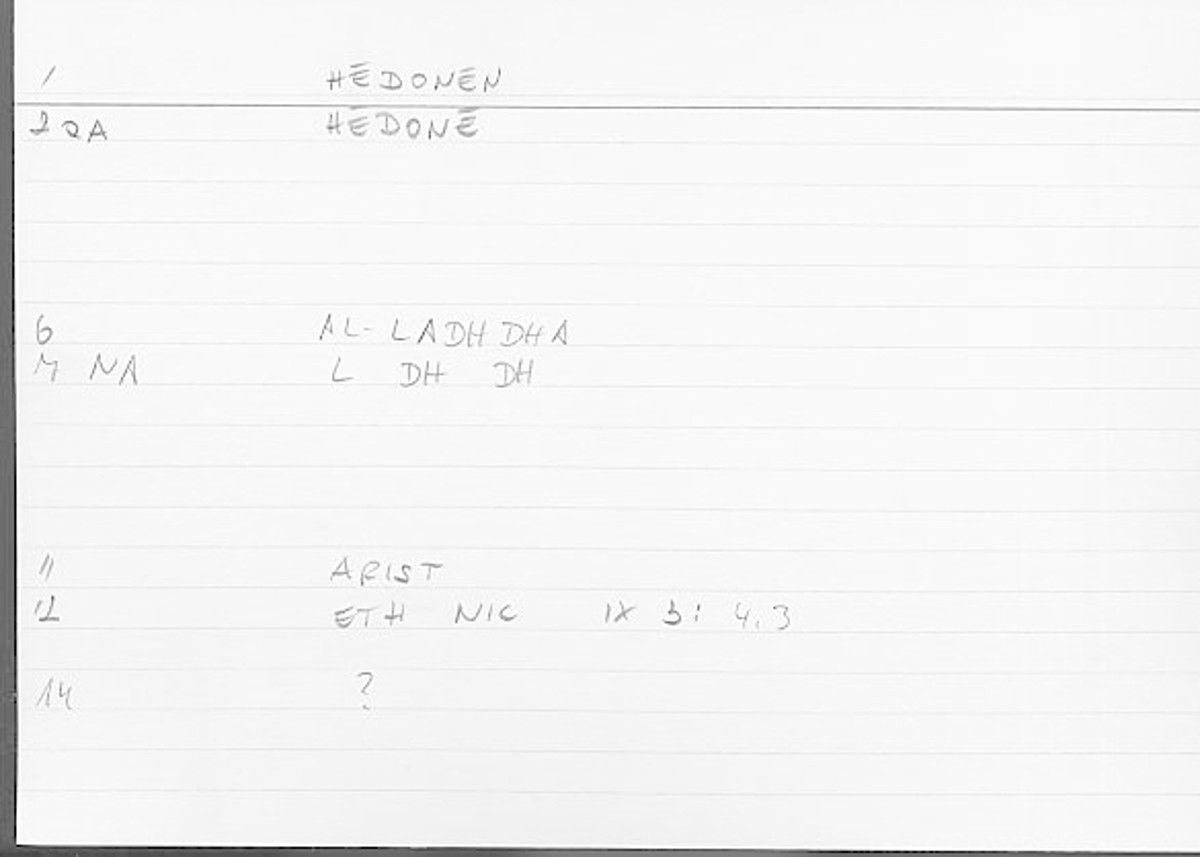 1 HĒDONĒN
2 QA HĒDONĒ
6 AL-LADHDHA
7 NA L DH DH
11 ARIST
12 ETH NIC IX 3: 4.3
14 ?